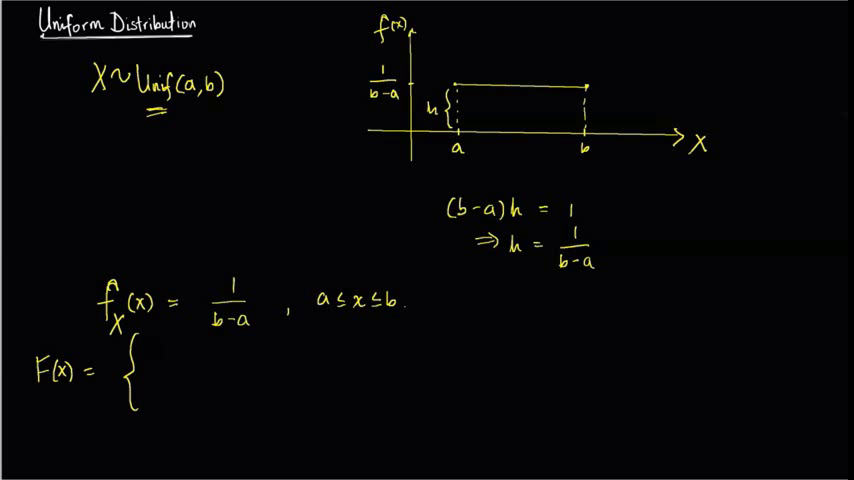 Uniform Distribution
X ~ Unif(a,b)
f(x)
1/(b-a)
h {
a
b
X
(b-a)h = 1
⇒ h = 1/(b-a)
f_X(x) = 1/(b-a) , a ≤ x ≤ b.
F(x) = {